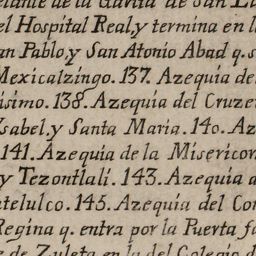 elante de la Garita de San L
el Hospital Real, y termina en l
an Pablo y San Atonio Abad q. s
Mexicaltzingo. 137. Azequia de
isimo. 138. Azequia del Cruze
Ysabel, y Santa Maria. 140. Az
141. Azequia de la Misericor
y Tezontlali. 143. Azequia d
atelulco. 145. Azequia del Co
Regina q. entra por la Puerta fa
e de Zuleta en la del Colegio d